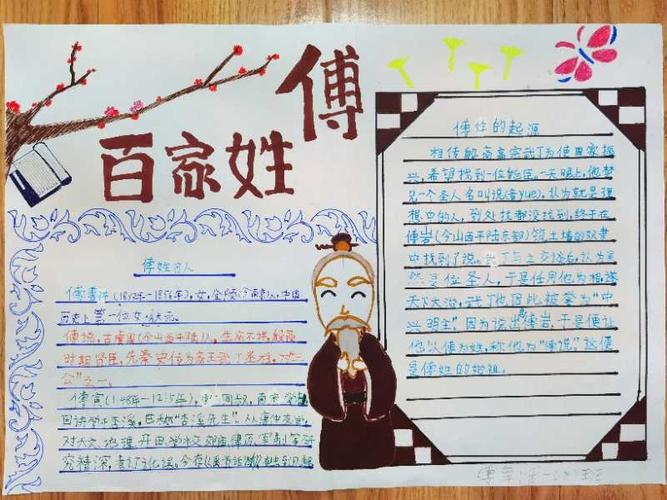 百家姓
傅
傅姓名人
傅善祥(1833年—1856年),女,金陵(今南京)人,中国
历史上第一位女状元。
傅说,古虞国(今山西平陆)人,生卒不详,殷商
时期贤臣,先秦史传为商王武丁丞相,为"三
公"之一。
傅寅(1148年—1215年),
学者
对天文、地理、
究精深,
傅姓的起源
相传殷商高宗武丁为使国家振
兴,希望找到一位能臣,一天晚上,他梦
见一个圣人名叫说(音yuè),认为就是理
想中的人,到处找都没找到,终于在
傅岩(今山西平陆东部)筑土墙的奴隶
中找到了说。武丁与之交谈后,认为果
然是位圣人,于是任用他为相,
天下大治,武丁也因此被誉为"中
兴明主"。因为说出自傅岩,于是便让
他以傅为姓,称他为"傅说"。这便
是傅姓的始祖。